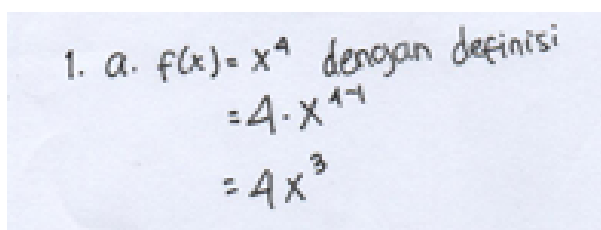 1. a. f(x) = x⁴ dengan definisi
= 4 . x⁴⁻¹
= 4x³